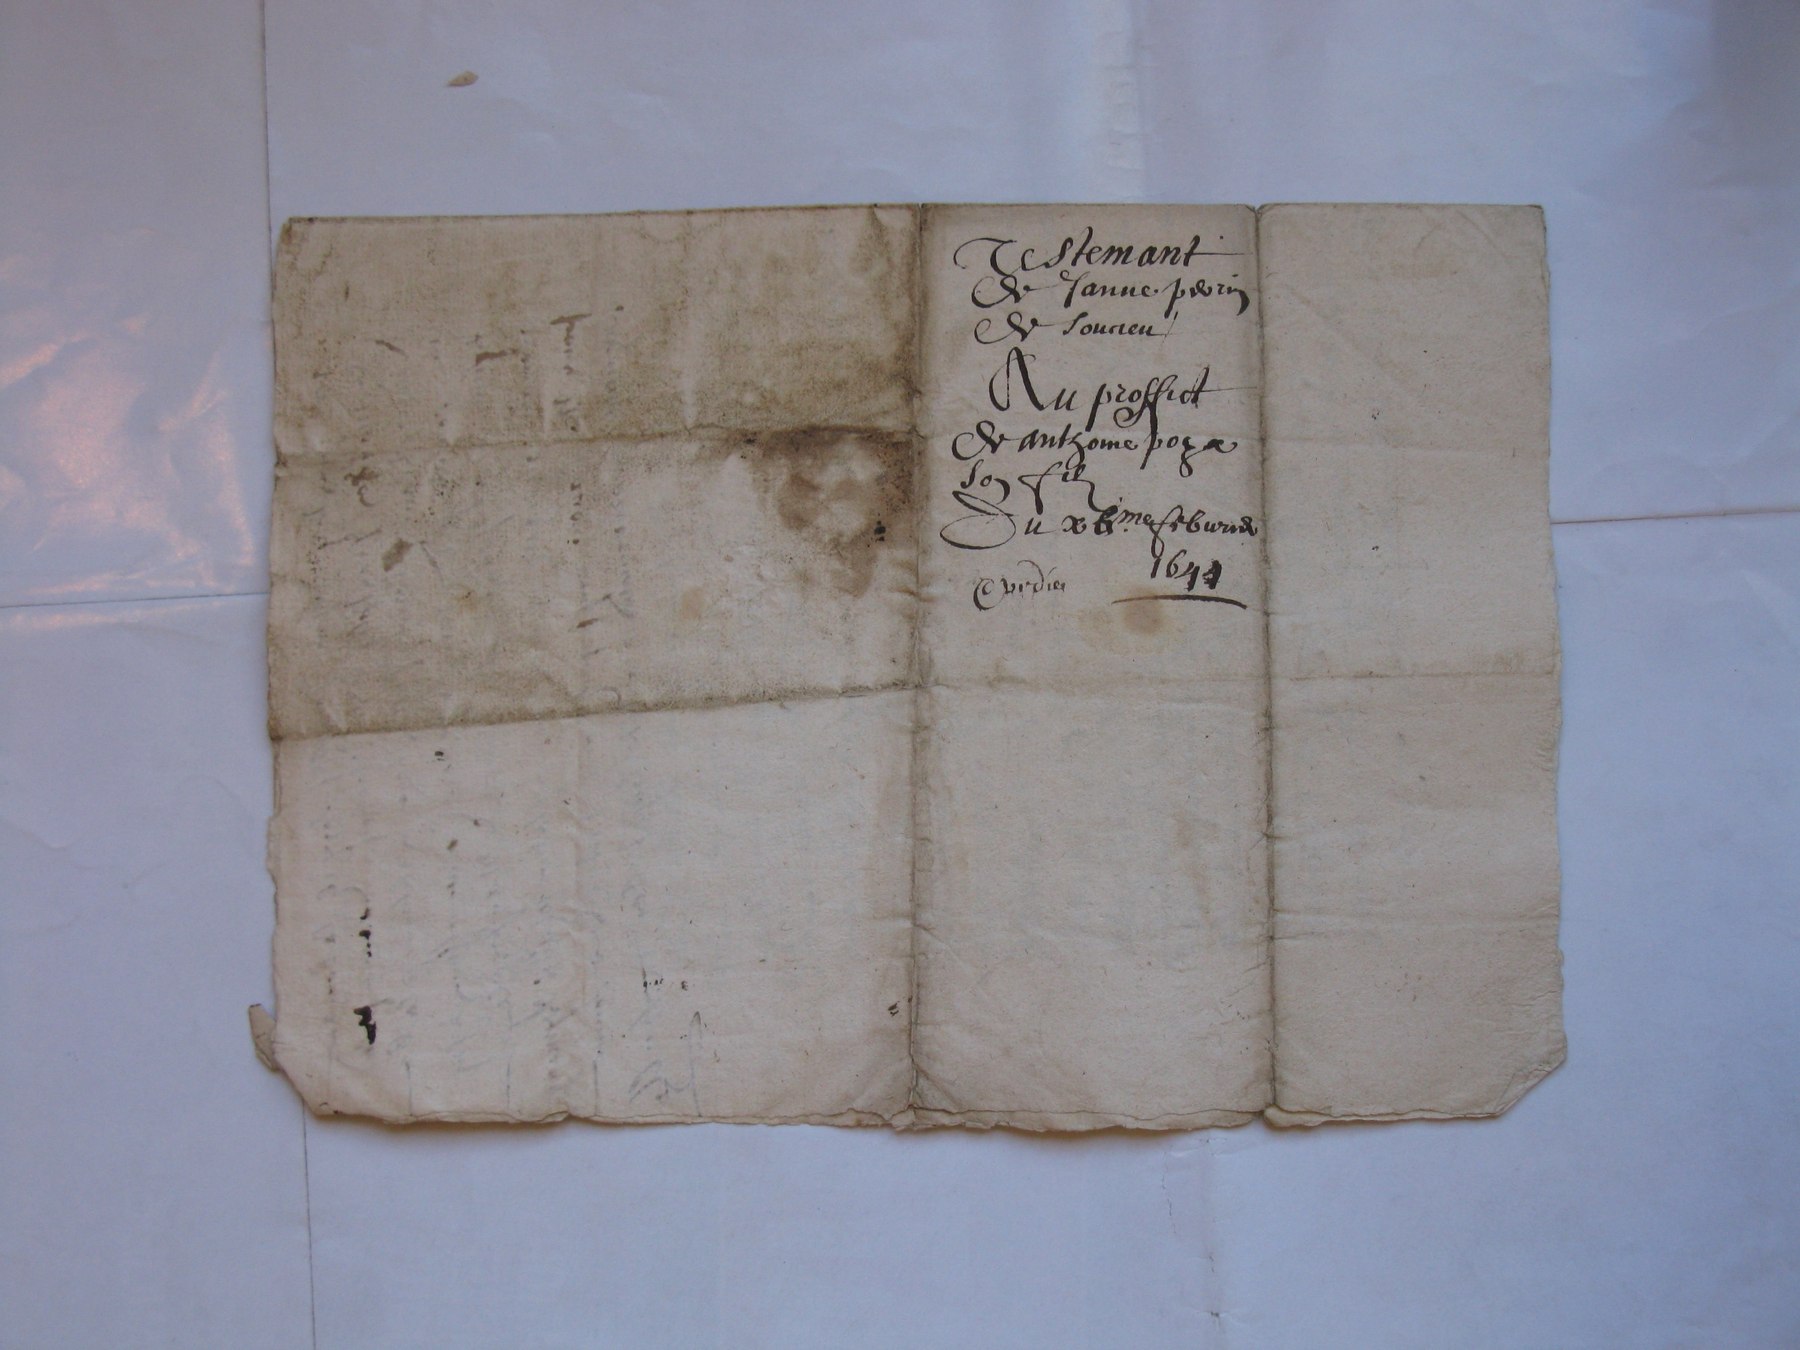 Testemant
de Janne perrin
de Soucieu
Au proffict
de anthoine
Son filz
Du xv.me febvrier
1644